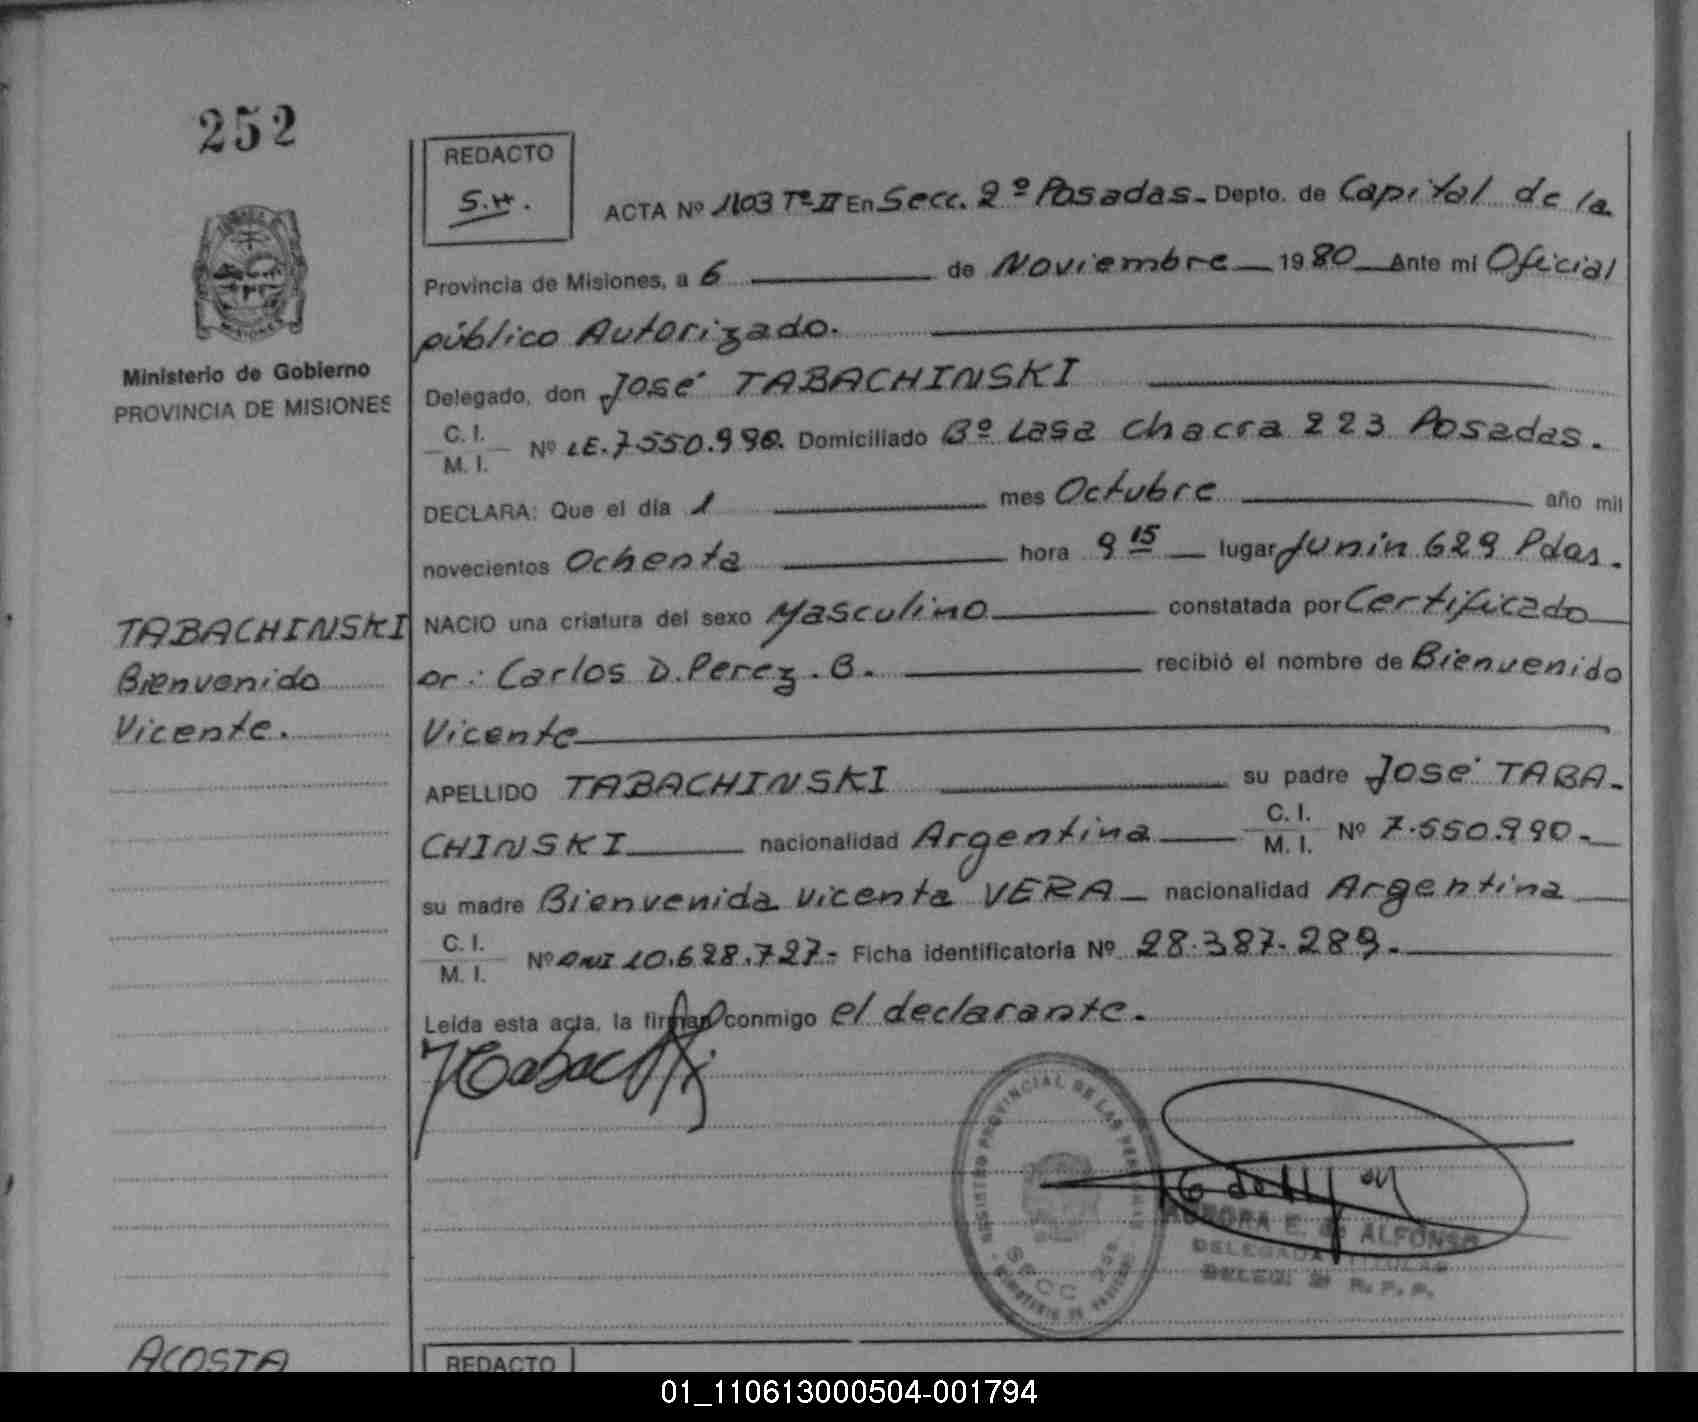 252
REDACTO
S.H.
ACTA Nº 1103 Tº II En Secc. 2º Posadas. Depto. de Capital de la
Provincia de Misiones, a 6 de Noviembre 1980 Ante mi Oficial
público Autorizado.
Ministerio de Gobierno
PROVINCIA DE MISIONES
Delegado, don José TABACHINSKI
C. I.
M. I.
Nº LE. 7.550.990. Domiciliado Bº Lasa chacra 223 Posadas.
DECLARA: Que el día 1 mes Octubre año mil
novecientos Ochenta hora 9 15 lugar Junin 629 Pdas.
TABACHINSKI
Bienvenido
Vicente.
NACIO una criatura del sexo Masculino constatada por Certificado
Dr: Carlos D. Perez. B. recibió el nombre de Bienvenido
Vicente
APELLIDO TABACHINSKI su padre José TABA-
CHINSKI nacionalidad Argentina C. I. M. I. Nº 7.550.990.
su madre Bienvenida Vicenta VERA nacionalidad Argentina
C. I.
M. I.
Nº DNI 10.628.727.- Ficha identificatoria Nº 28.387.289.
Leída esta acta, la firman conmigo el declarante.
REGISTRO PROVINCIAL DE LAS PERSONAS
SECC 2da
AURORA E. de ALFONSO
DELEGADA TITULAR
DELEG. 2ª R. P. P.
ACOSTA
REDACTO
01_110613000504-001794